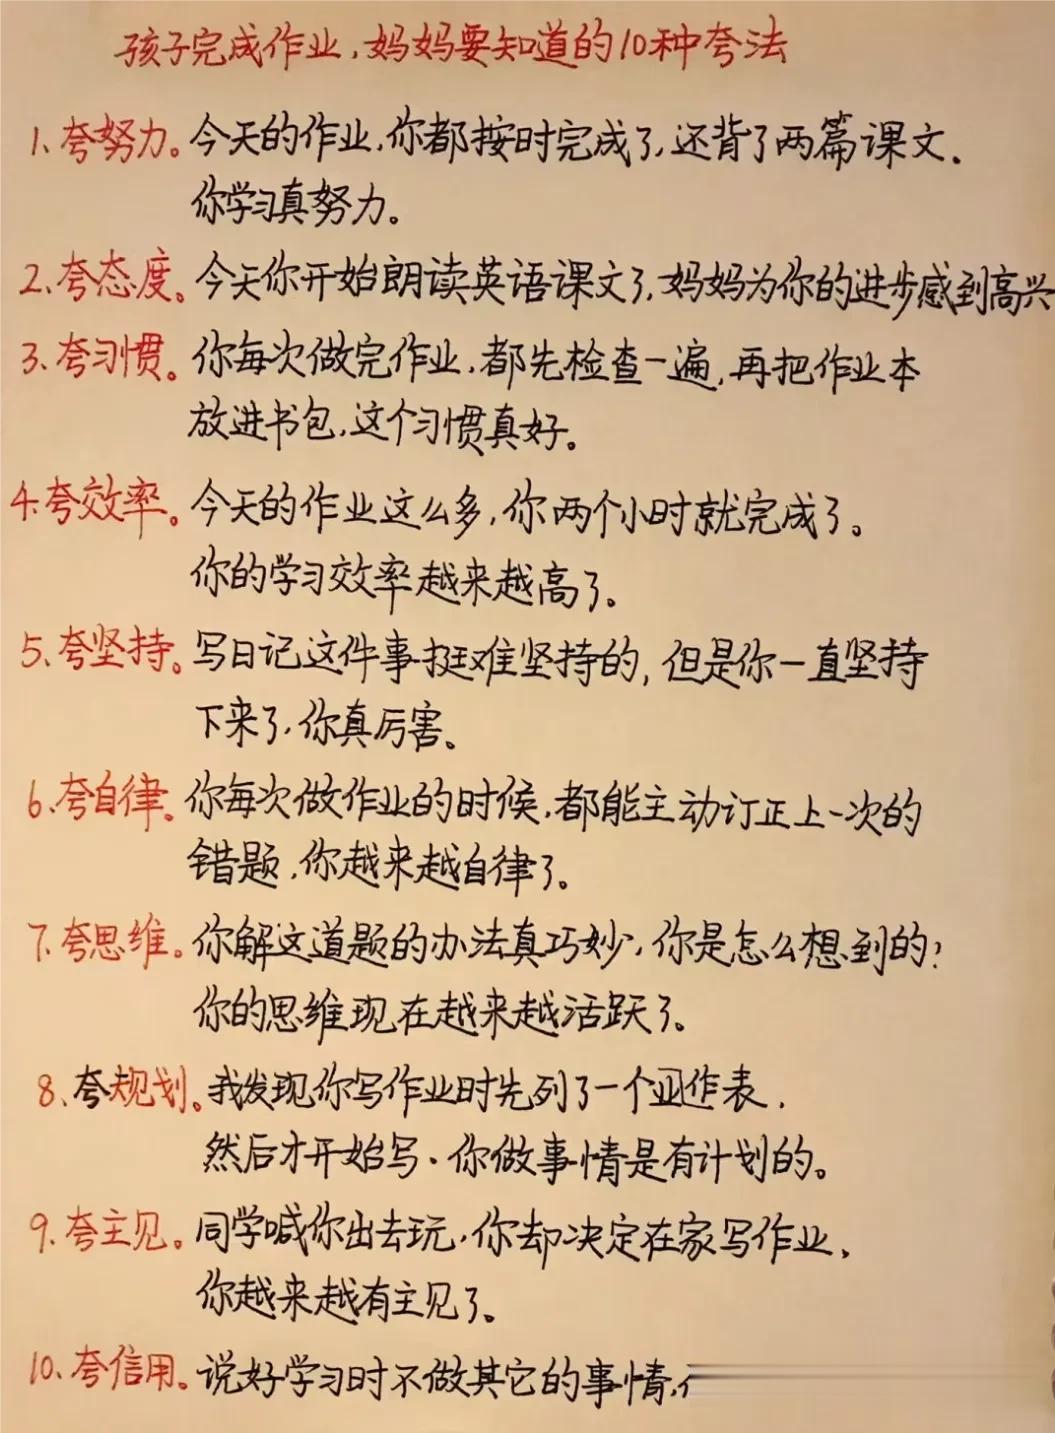 孩子完成作业,妈妈要知道的10种夸法
1、夸努力。今天的作业,你都按时完成了,还背了两篇课文.
你学习真努力。
2、夸态度。今天你开始朗读英语课文了,妈妈为你的进步感到高兴
3、夸习惯。你每次做完作业,都先检查一遍,再把作业本
放进书包,这个习惯真好。
4.夸效率。今天的作业这么多,你两个小时就完成了。
你的学习效率越来越高了。
5、夸坚持。写日记这件事挺难坚持的,但是你一直坚持
下来了,你真厉害。
6、夸自律。你每次做作业的时候,都能主动订正上一次的
错题,你越来越自律了。
7、夸思维。你解这道题的办法真巧妙,你是怎么想到的?
你的思维现在越来越活跃了。
8、夸规划。我发现你写作业时先列了一个作表,
然后才开始写.你做事情是有计划的。
9、夸主见。同学喊你出去玩,你却决定在家写作业,
你越来越有主见了。
10、夸信用。说好学习时不做其它的事情,